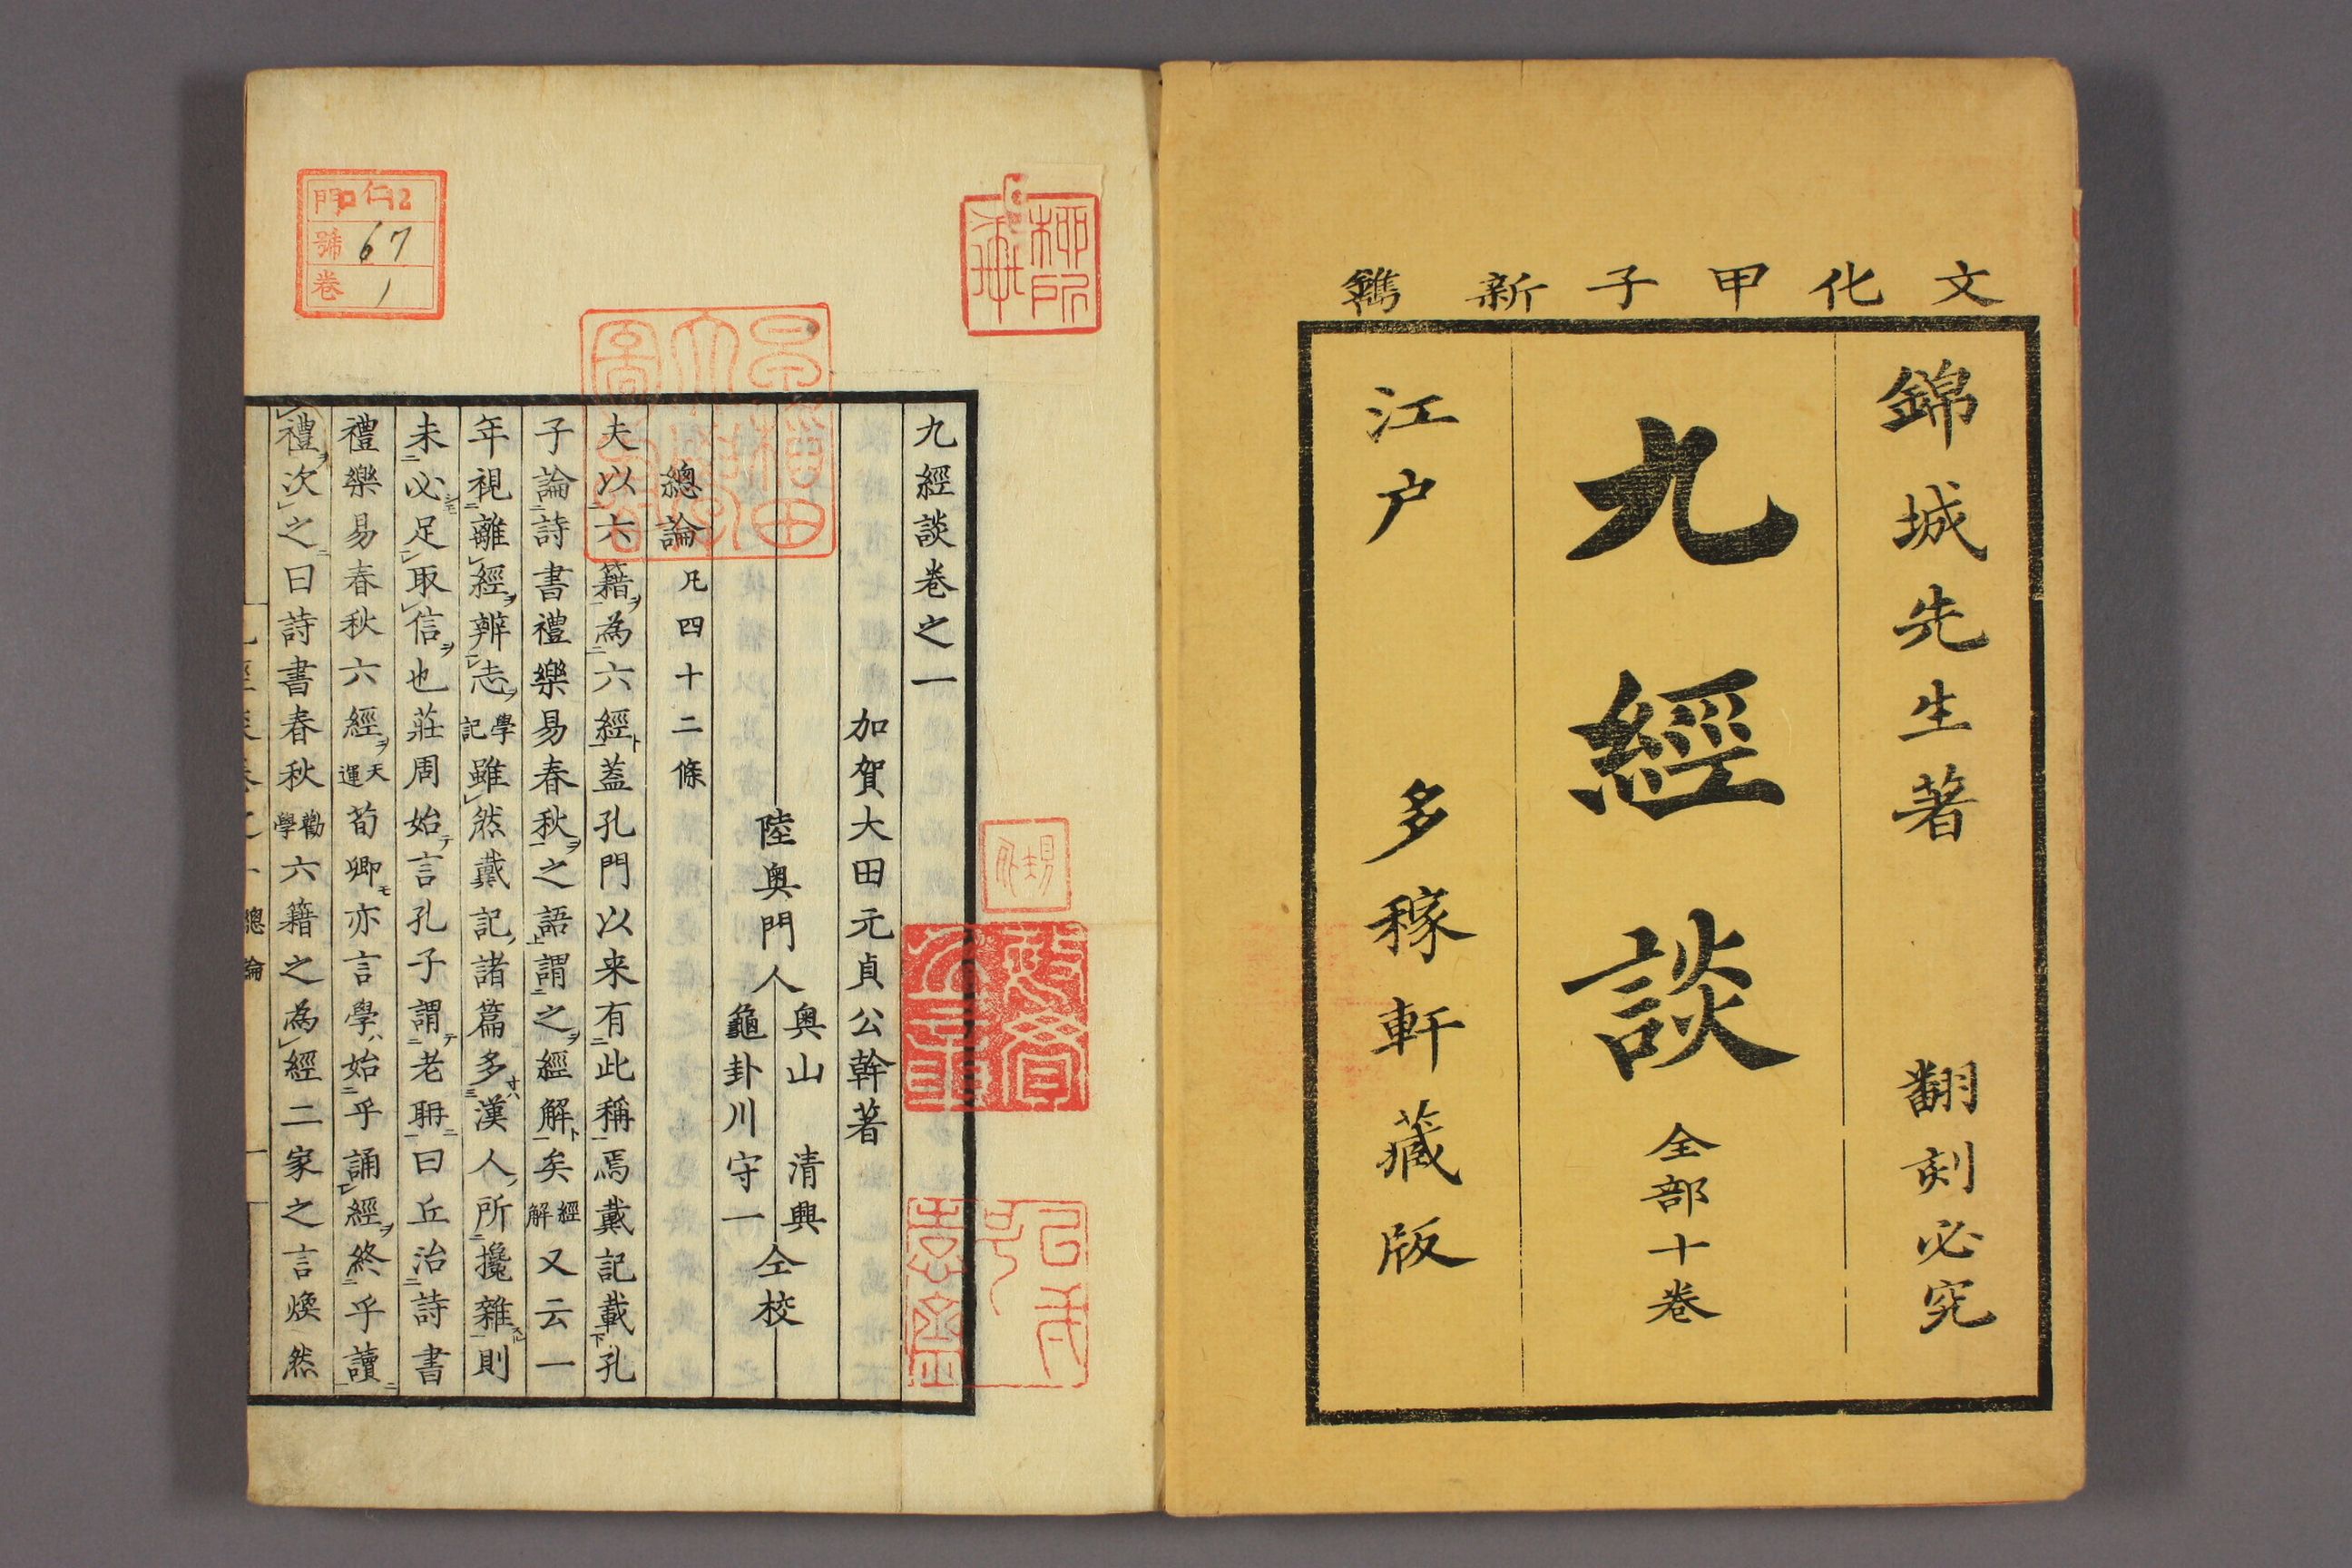 文化甲子新鐫
錦城先生著 翻刻必究
九經談 全部十卷
江戸 多稼軒藏版
九經談卷之一
加賀大田元貞公幹著
陸奥門人
奥山 清興
龜卦川守一
仝校
總論 凡四十二條
夫以六籍ヲ為六經ト蓋孔門以来有此稱焉戴記載孔
子論詩書禮樂易春秋ヲ之語謂之ヲ經解ト矣經解又云一
年視離經ヲ辨志ヲ學記雖然戴記諸篇多漢人所攙雜則
未必足取信ヲ也莊周始テ言孔子謂テ老聃曰丘治詩書
禮樂易春秋六經ヲ天運荀卿モ亦言學ハ始乎誦經ヲ終乎讀
禮ヲ次之曰詩書春秋勸學六籍之為經二家之言煥然
總論
一
門 仁2
號 67
卷 1
柳所
早稲田大學圖書